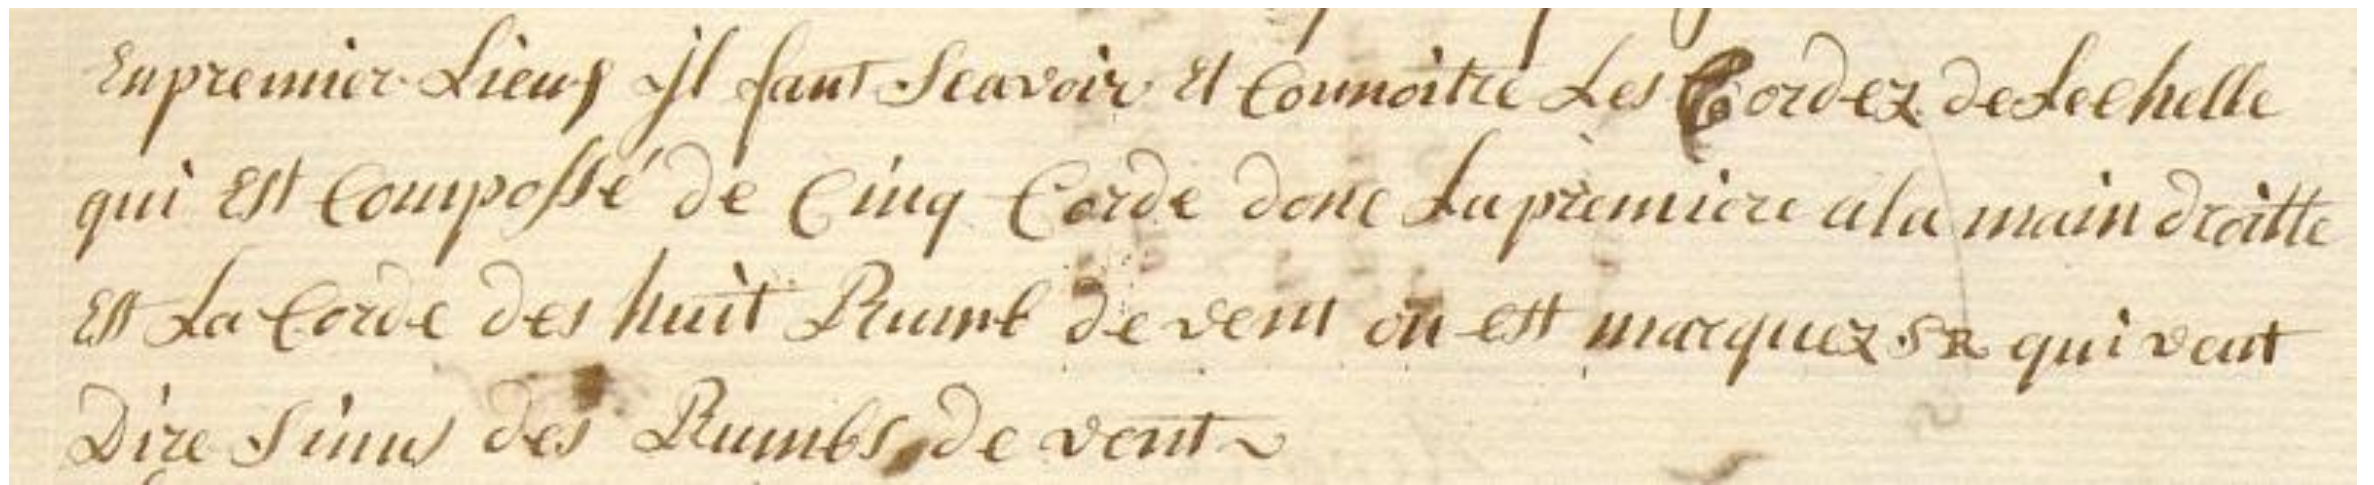 Enpremier Lieuf jl faut Scavoir Et Connoitre Les Cordez de Lechelle
qui Est Compossé de Cinq Corde donc La premiere a la main droitte
Est La Corde des huit Rumb de vent où est marquez SR qui veut
Dire Sinus des Rumbs de vent